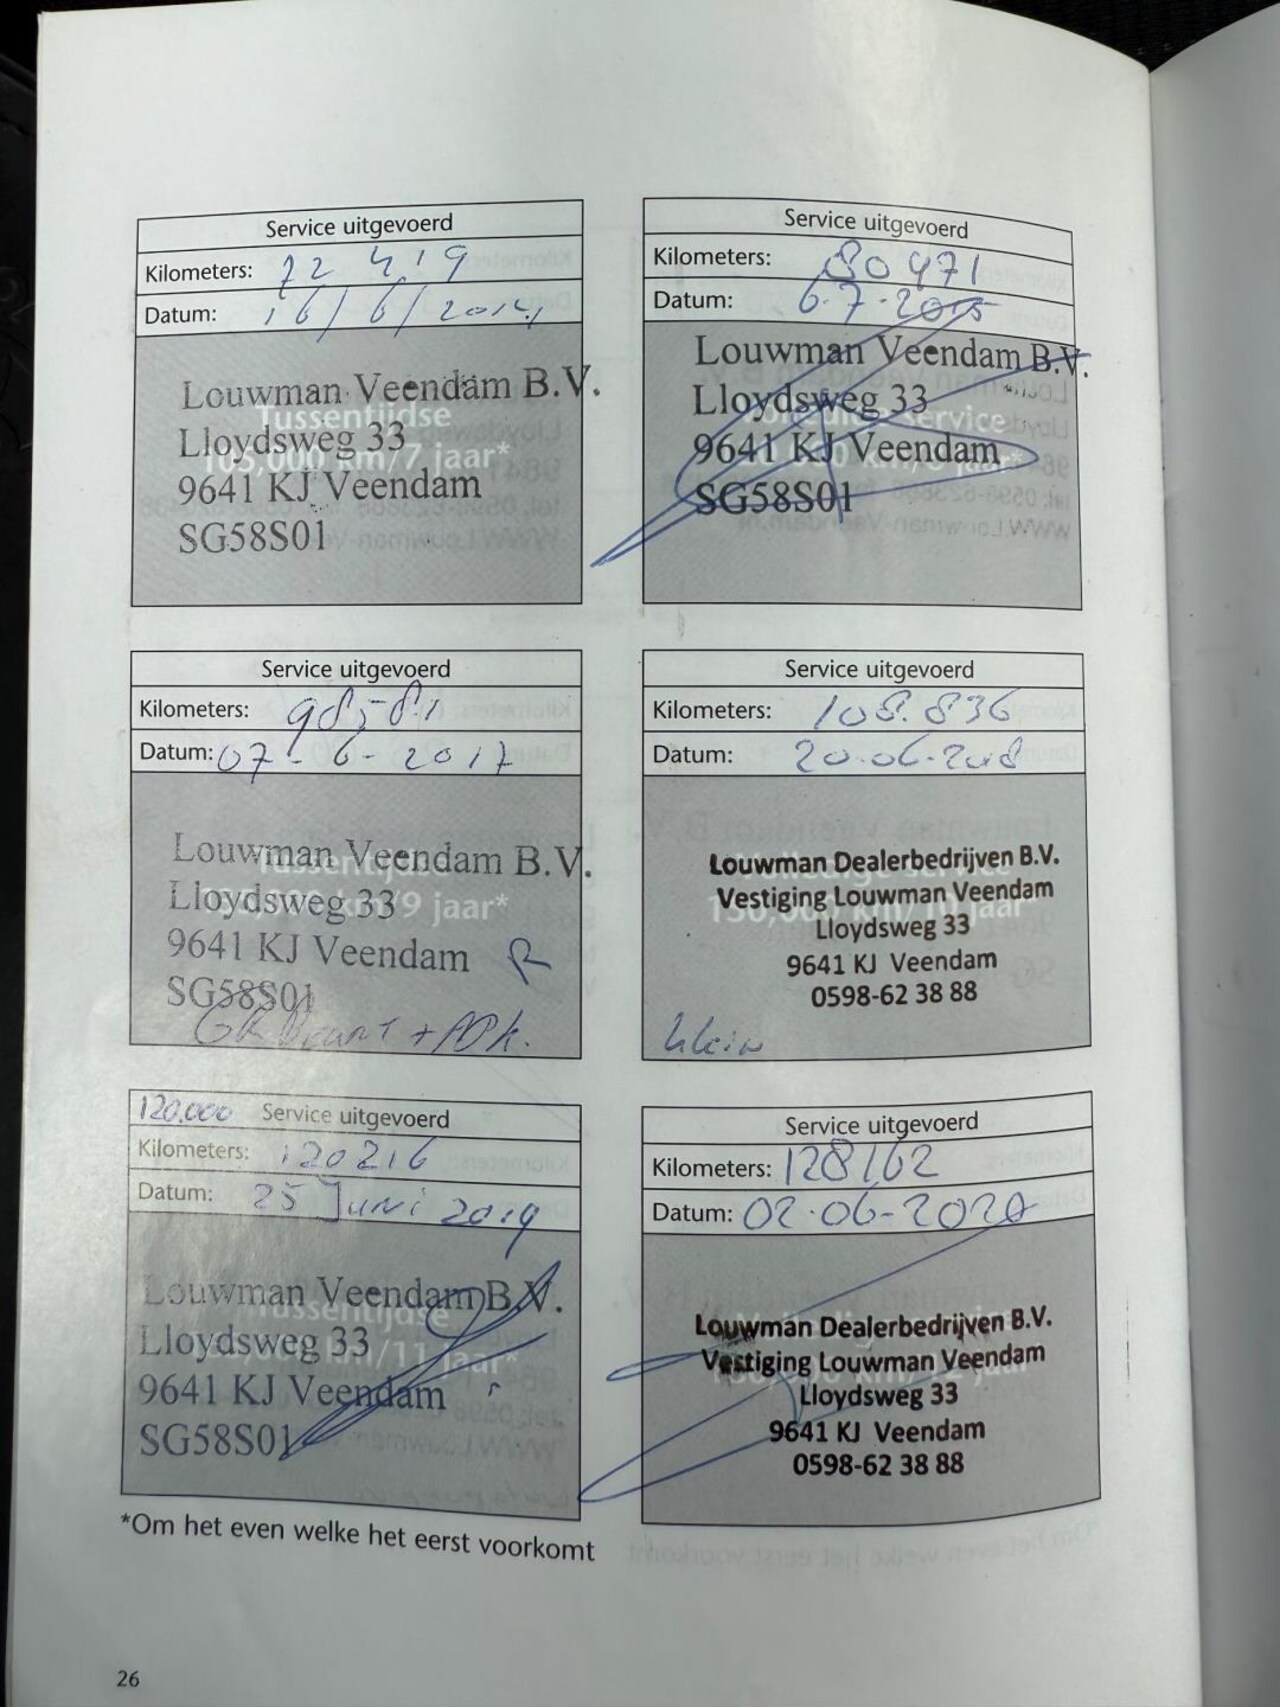 Service uitgevoerd
Kilometers: 72 419
Datum: 16/6/2014
Louwman Veendam B.V.
Tussentijdse
Lloydsweg 33
105,000 km/7 jaar*
9641 KJ Veendam
SG58S01
Service uitgevoerd
Kilometers: 80 471
Datum: 6-7-2015
Louwman Veendam B.V.
Lloydsweg 33
service
9641 KJ Veendam
SG58S01
Service uitgevoerd
Kilometers: 98581
Datum: 07-6-2017
Louwman Veendam B.V.
Tussentijdse
Lloydsweg 33
km/9 jaar*
9641 KJ Veendam
SG58S01
GR Beurt + APK.
Service uitgevoerd
Kilometers: 108.836
Datum: 20-06-2018
Louwman Dealerbedrijven B.V.
Volledige service
Vestiging Louwman Veendam
150,000 km/10 jaar*
Lloydsweg 33
9641 KJ Veendam
0598-62 38 88
klein
120.000 Service uitgevoerd
Kilometers: 120216
Datum: 25 Juni 2019
Louwman Veendam B.V.
Tussentijdse
Lloydsweg 33
km/11 jaar*
9641 KJ Veendam
SG58S01
Service uitgevoerd
Kilometers: 128162
Datum: 02-06-2020
Louwman Dealerbedrijven B.V.
Vestiging Louwman Veendam
Lloydsweg 33
9641 KJ Veendam
0598-62 38 88
*Om het even welke het eerst voorkomt
26